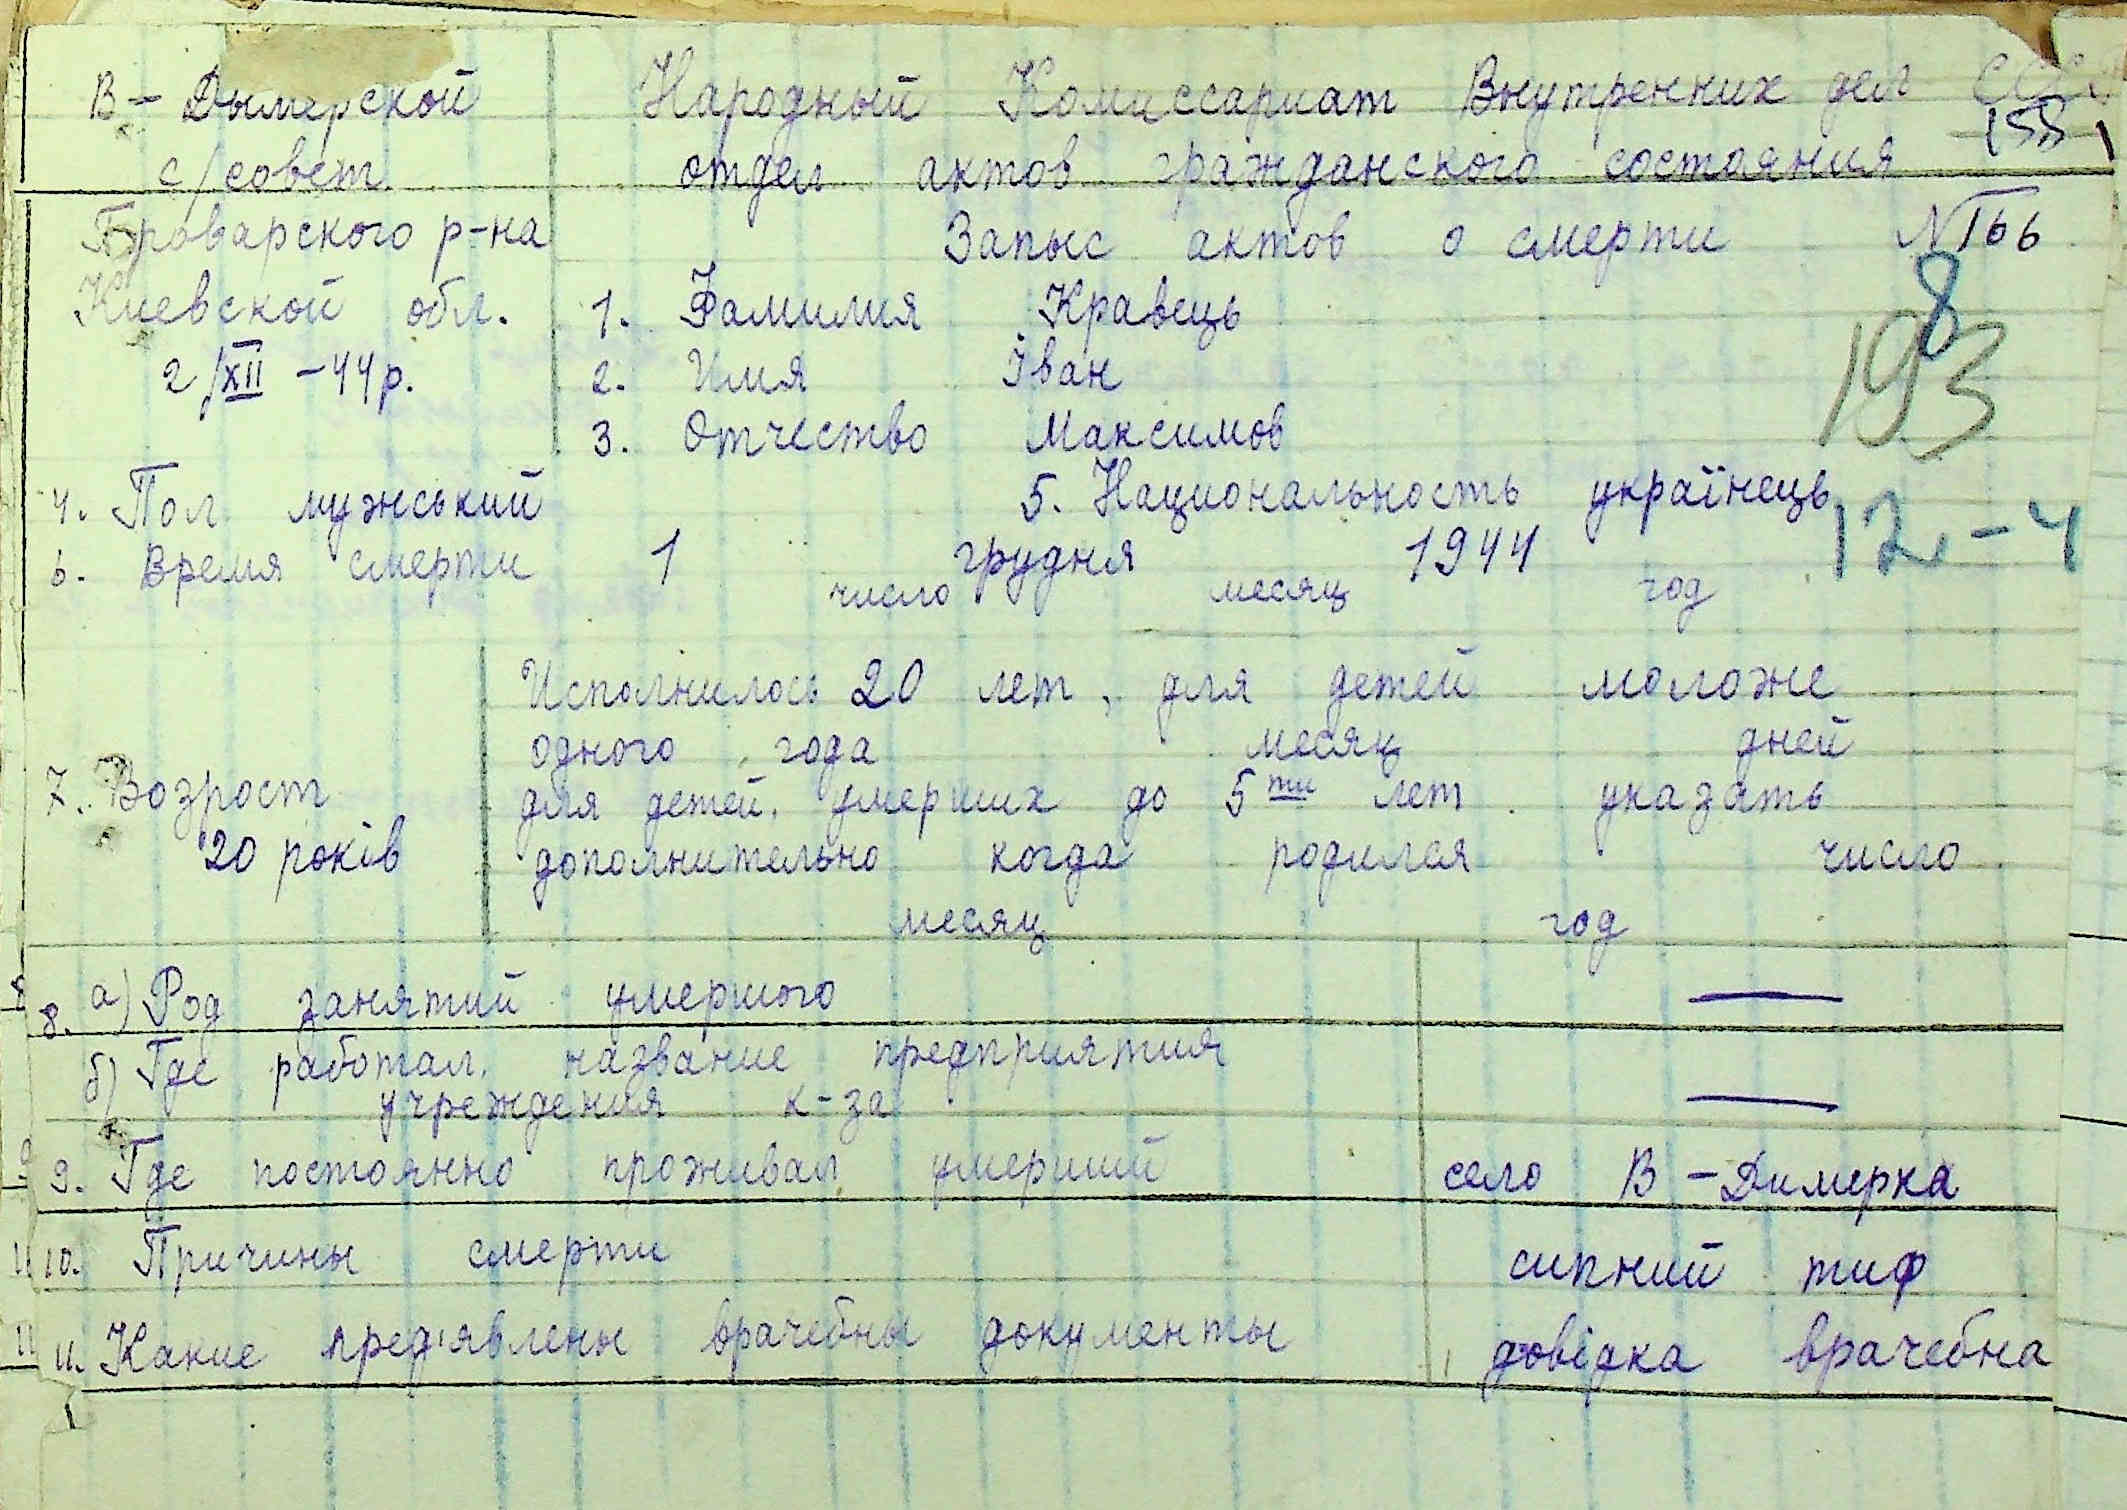 В-Дымерской
с/совет.
Броварского р-на
Киевской обл.
2/XII -44р.
Народный Комиссариат Внутренних дел СССР
155
отдел актов гражданского состояния
Запыс актов о смерти № 166
1. Фамилия Кравець
8
193
2. Имя Іван
3. Отчество Максимов
4. Пол мужський 5. Национальность українець
12-4
6. Время смерти 1 грудня 1944
число месяц год
Исполнилось 20 лет, для детей моложе
одного года месяц дней
7. Возрост
для детей, умерших до 5ти лет указать
20 років
дополнительно когда родился число
месяц год
8. а) Род занятий умершого —
б) Где работал, название предприятия
учреждения к-за —
9. Где постоянно проживал умерший село В-Димерка
10. Причины смерти сипний тиф
11. Какие пред'явлены врачебны документы довідка врачебна